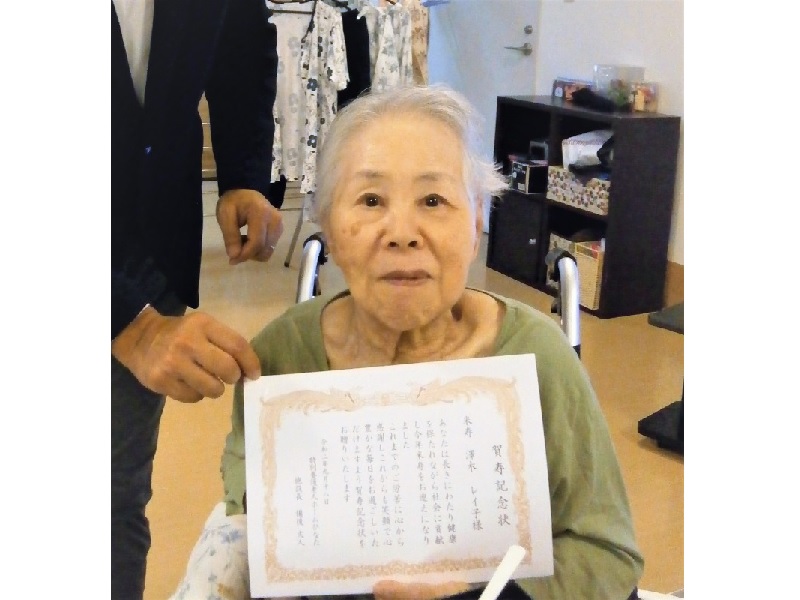 賀寿記念状
米寿 澤永 レイ子様
あなたは長きにわたり健康
を保たれながら社会に貢献
し今年米寿をお迎えになり
ました
これまでのご労苦に心から
感謝しこれからも笑顔で心
豊かな毎日をお過ごしいた
だけますよう賀寿記念状を
お贈りいたします
令和二年九月十八日
特別養護老人ホームひなた
施設長